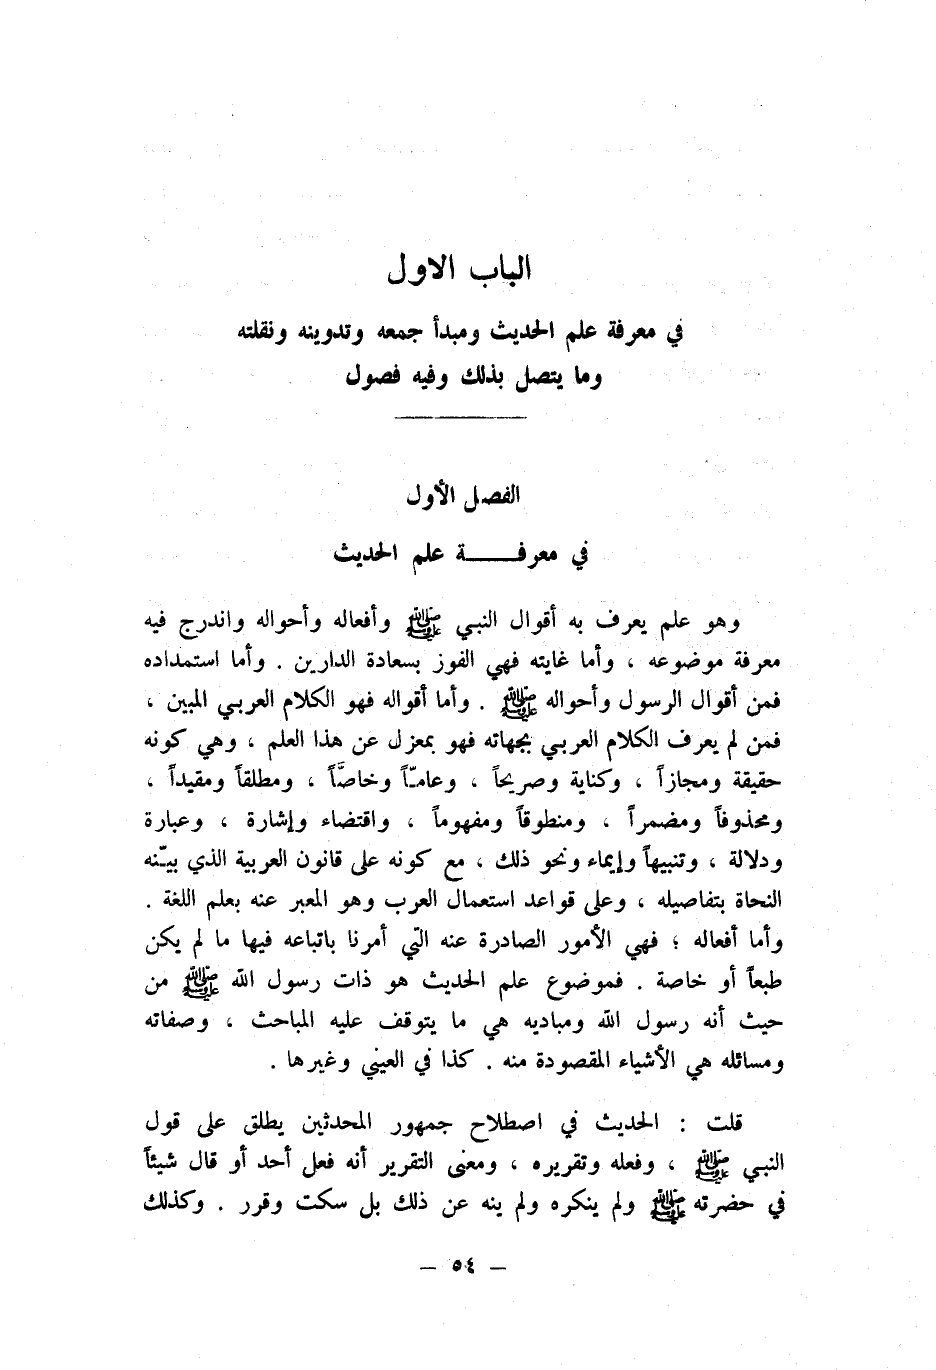 الباب الاول
في معرفة علم الحديث ومبدأ جمعه وتدوينه ونقلته
وما يتصل بذلك وفيه فصول
الفصل الأول
في معرفـــــة علم الحديث
وهو علم يعرف به أقوال النبي ﷺ وأفعاله وأحواله واندرج فيه
معرفة موضوعه ، وأما غايته فهي الفوز بسعادة الدارين . وأما استمداده
فمن أقوال الرسول وأحواله ﷺ . وأما أقواله فهو الكلام العربي المبين ،
فمن لم يعرف الكلام العربي بجهاته فهو بمعزل عن هذا العلم ، وهي كونه
حقيقة ومجازاً ، وكناية وصريحاً ، وعامّاً وخاصّاً ، ومطلقاً ومقيداً ،
ومحذوفاً ومضمراً ، ومنطوقاً ومفهوماً ، واقتضاء وإشارة ، وعبارة
ودلالة ، وتنبيهاً وإيماء ونحو ذلك ، مع كونه على قانون العربية الذي بيّنه
النحاة بتفاصيله ، وعلى قواعد استعمال العرب وهو المعبر عنه بعلم اللغة .
وأما أفعاله ؛ فهي الأمور الصادرة عنه التي أمرنا باتباعه فيها ما لم يكن
طبعاً أو خاصة . فموضوع علم الحديث هو ذات رسول الله ﷺ من
حيث أنه رسول الله ومباديه هي ما يتوقف عليه المباحث ، وصفاته
ومسائله هي الأشياء المقصودة منه . كذا في العيني وغيرها .
قلت : الحديث في اصطلاح جمهور المحدثين يطلق على قول
النبي ﷺ ، وفعله وتقريره ، ومعنى التقرير أنه فعل أحد أو قال شيئاً
في حضرته ﷺ ولم ينكره ولم ينه عن ذلك بل سكت وقرر . وكذلك
– ٥٤ –